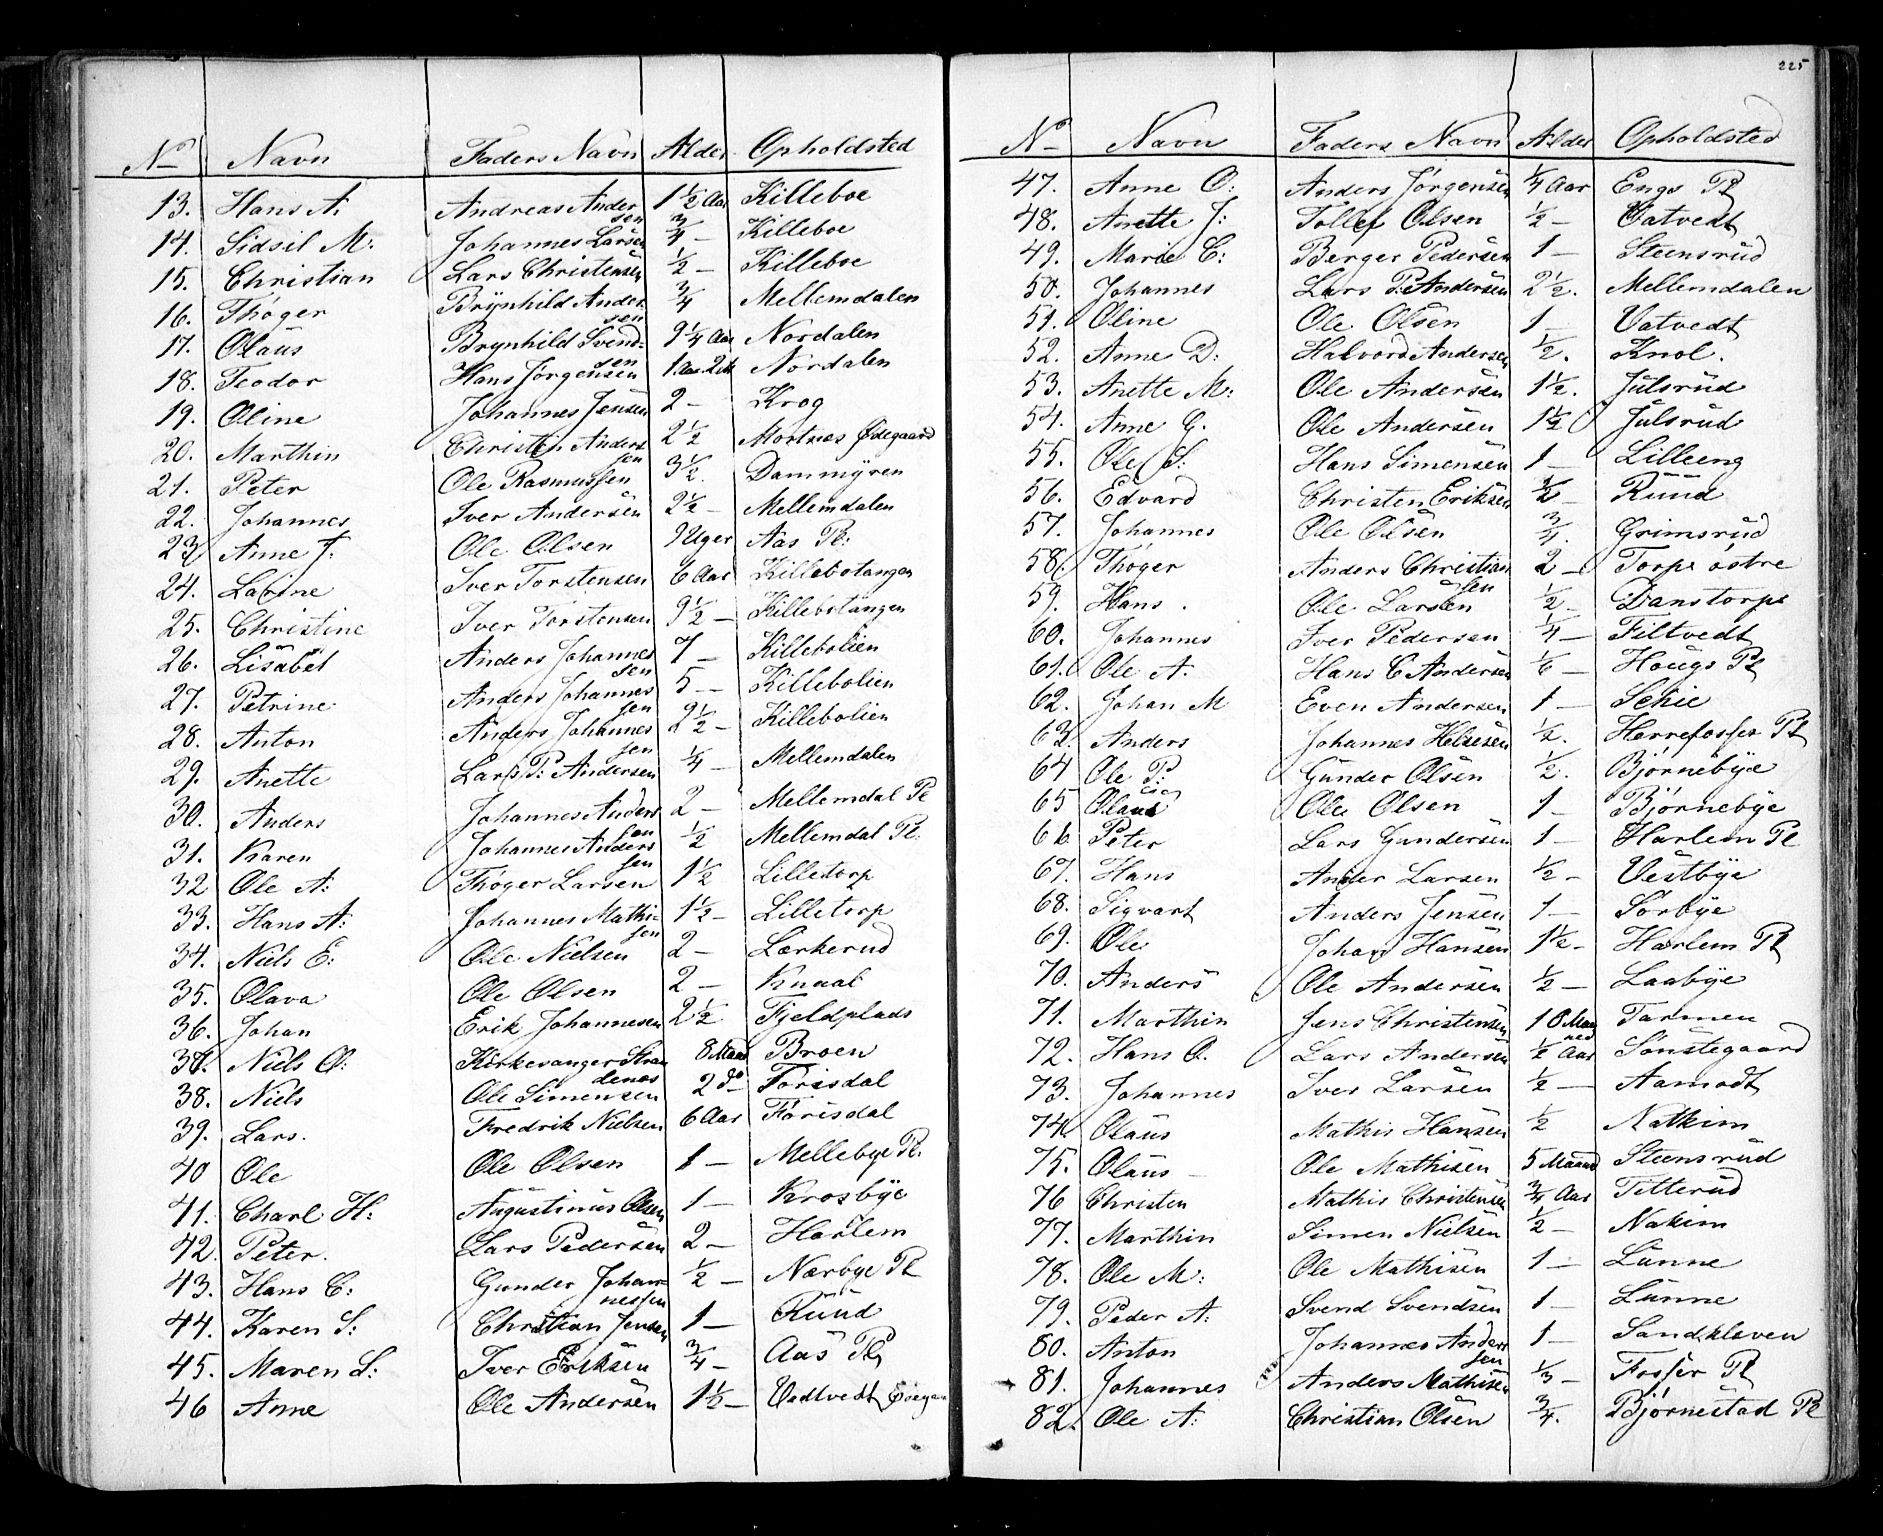 225
No Navn Faders Navn Alder Opholdsted
13. Hans A. Andreas Andersen 1½ Aar Killeboe
14. Sidsil M. Johannes Larsen ¾ — Killeboe
15. Christian Lars Christensen ½ — Killeboe
16. Thøger Brynhild Andersen ¾ Mellemdalen
17. Olaus Brynhild Svendsen 9¼ Aar Nordalen
18. Teodor Hans Jørgensen 1 Aar 2 Nordalen
19. Oline Johannes Jensen 2 — Krog
20. Marthin Christen Anderssen 2½ Mortnæs Ødegaard
21. Peter Ole Rasmussen 3½. Dammyren
22. Johannes Iver Andersen 2½ — Mellemdalen
23 Anne J: Ole Olsen 9 Uger Aas Pl:
24. Larine Iver Torstensen 6 Aar Killebotangen
25. Christine Iver Torstensen 9½ — Killebotangen
26. Lisabet Anders Johannessen 7 — Killebolien
27. Petrine Anders Johannessen 5 — Killebolien
28. Anton Anders Johannessen 2½ — Killebolien
29. Anette Lars P: Andersen ¼ — Mellemdalen
30. Anders Johannes Anderssen 2 — Mellemdal Pl
31. Karen Johannes Anderssen ½ Mellemdal Pl.
32 Ole A: Thøger Larsen 1½ Lilletorp
33. Hans A: Johannes Mathisen 1½ — Lilletorp
34. Niels E: Ole Nielsen 2 — Lærkerud
35. Olava Ole Olsen 2 — Knaal
36. Johan Erik Johannesen 2½ Fjeldplads
38. Niels O: Kirkesanger Strandenæs 8 Maan Broen
38. Niels Ole Simensen 2 do — Forisdal
39. Lars. Fredrik Nielsen 6 Aar Forisdal
40 Ole Ole Olsen 1 — Mellebye Pl.
41. Charl H: Augustinus Olsen 1 — Krosbye
42. Peter. Lars Pedersen 2 — Harlem
43. Hans C: Gunder Johannessen ½ — Nærbye Pl
44. Karen S: Christian Jensen 1 — Ruud
45. Maren S: Iver Eriksen ¾ — Aas Pl
46 Anne Ole Andersen 1½ — Vadtvedt
No Navn Faders Navn Alder Opholdsted
47. Anne O: Anders Jørgensen ¼ Aar Engs Pl
48. Anette J: Tollef Olsen ½ — Vatvedt
49. Marie C: Berger Pedersen 1 — Steensrud
50. Johannes Lars P: Andersen 2½. Mellemdalen
51. Oline Ole Olsen 1 — Vatvedt
52. Anne D: Halvord Andersen ½. Knol.
53. Anette M: Ole Andersen 1½. Julsrud
54. Anne G. Ole Andersen 1½ Julsrud
55. Ole S: Hans Simensen 1 — Lilleeng
56. Edvard Christen Eriksen ½ — Ruud
57. Johannes Ole Olsen ¾. Grimsrud
58. Thøger Anders Christiansen 2 — Torpe østre
59. Hans. Ole Larsen ½ — Danstorpe
60. Johannes Iver Pedersen ¼ — Filtvedt
61. Ole A. Hans C Andersen ⅙ — Hougs Pl
62. Johan M Even Andersen 1 — Sckie
63. Anders Johannes Helsesen ½. Herrefosses Pl
64 Ole P: Gunder Olsen ½. Bjørnebye
65 Olaus Ole Olsen 1 — Bjørnebye
66 Peter Lars Gundersen 1 — Harlem Pl
67. Hans Ander Larsen ½ — Vestbye
68. Sigvart Anders Jensen 1 — Sørbye
69. Ole Johan Hansen 1½ — Harlem Pl
70. Anders Ole Andersen ½ — Laabye
71. Marthin Jens Christensen 10 Maaned Tarmen
72. Hans O. Lars Andersen ½ Aar Sønstegaard
73. Johannes Iver Larsen ½ — Aamodt
74. Olaus Mathis Hansen ½ Natkim
75. Olaus — Ole Mathisen 5 Maaned Steensrud
76 Christen Mathis Christensen ¾ Aar Titterud
77. Marthin Simen Nielsen ½ — Nakim
78. Ole M: Ole Mathisen 1 — Lunne
79. Peder A: Svend Svendsen 1 — Lunne
80. Anton Johannes Anderssen 1 — Sandkleven
81. Johannes Anders Mathisen ⅓ — Fosser Pl
82. Ole A: Christian Olsen ¾. Bjørnestad Pl